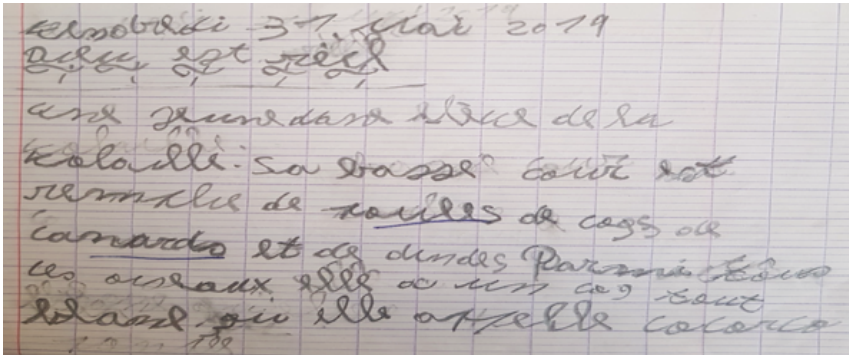 vendredi 31 Mai 2019
Dieu est réel
une jeune dame élève de la
volaille: Sa basse cour est
remplie de poules de coqs de
canards et de dindes Parmi tous
ces oiseaux elle a un coq tout
blanc qu elle appelle cocorico